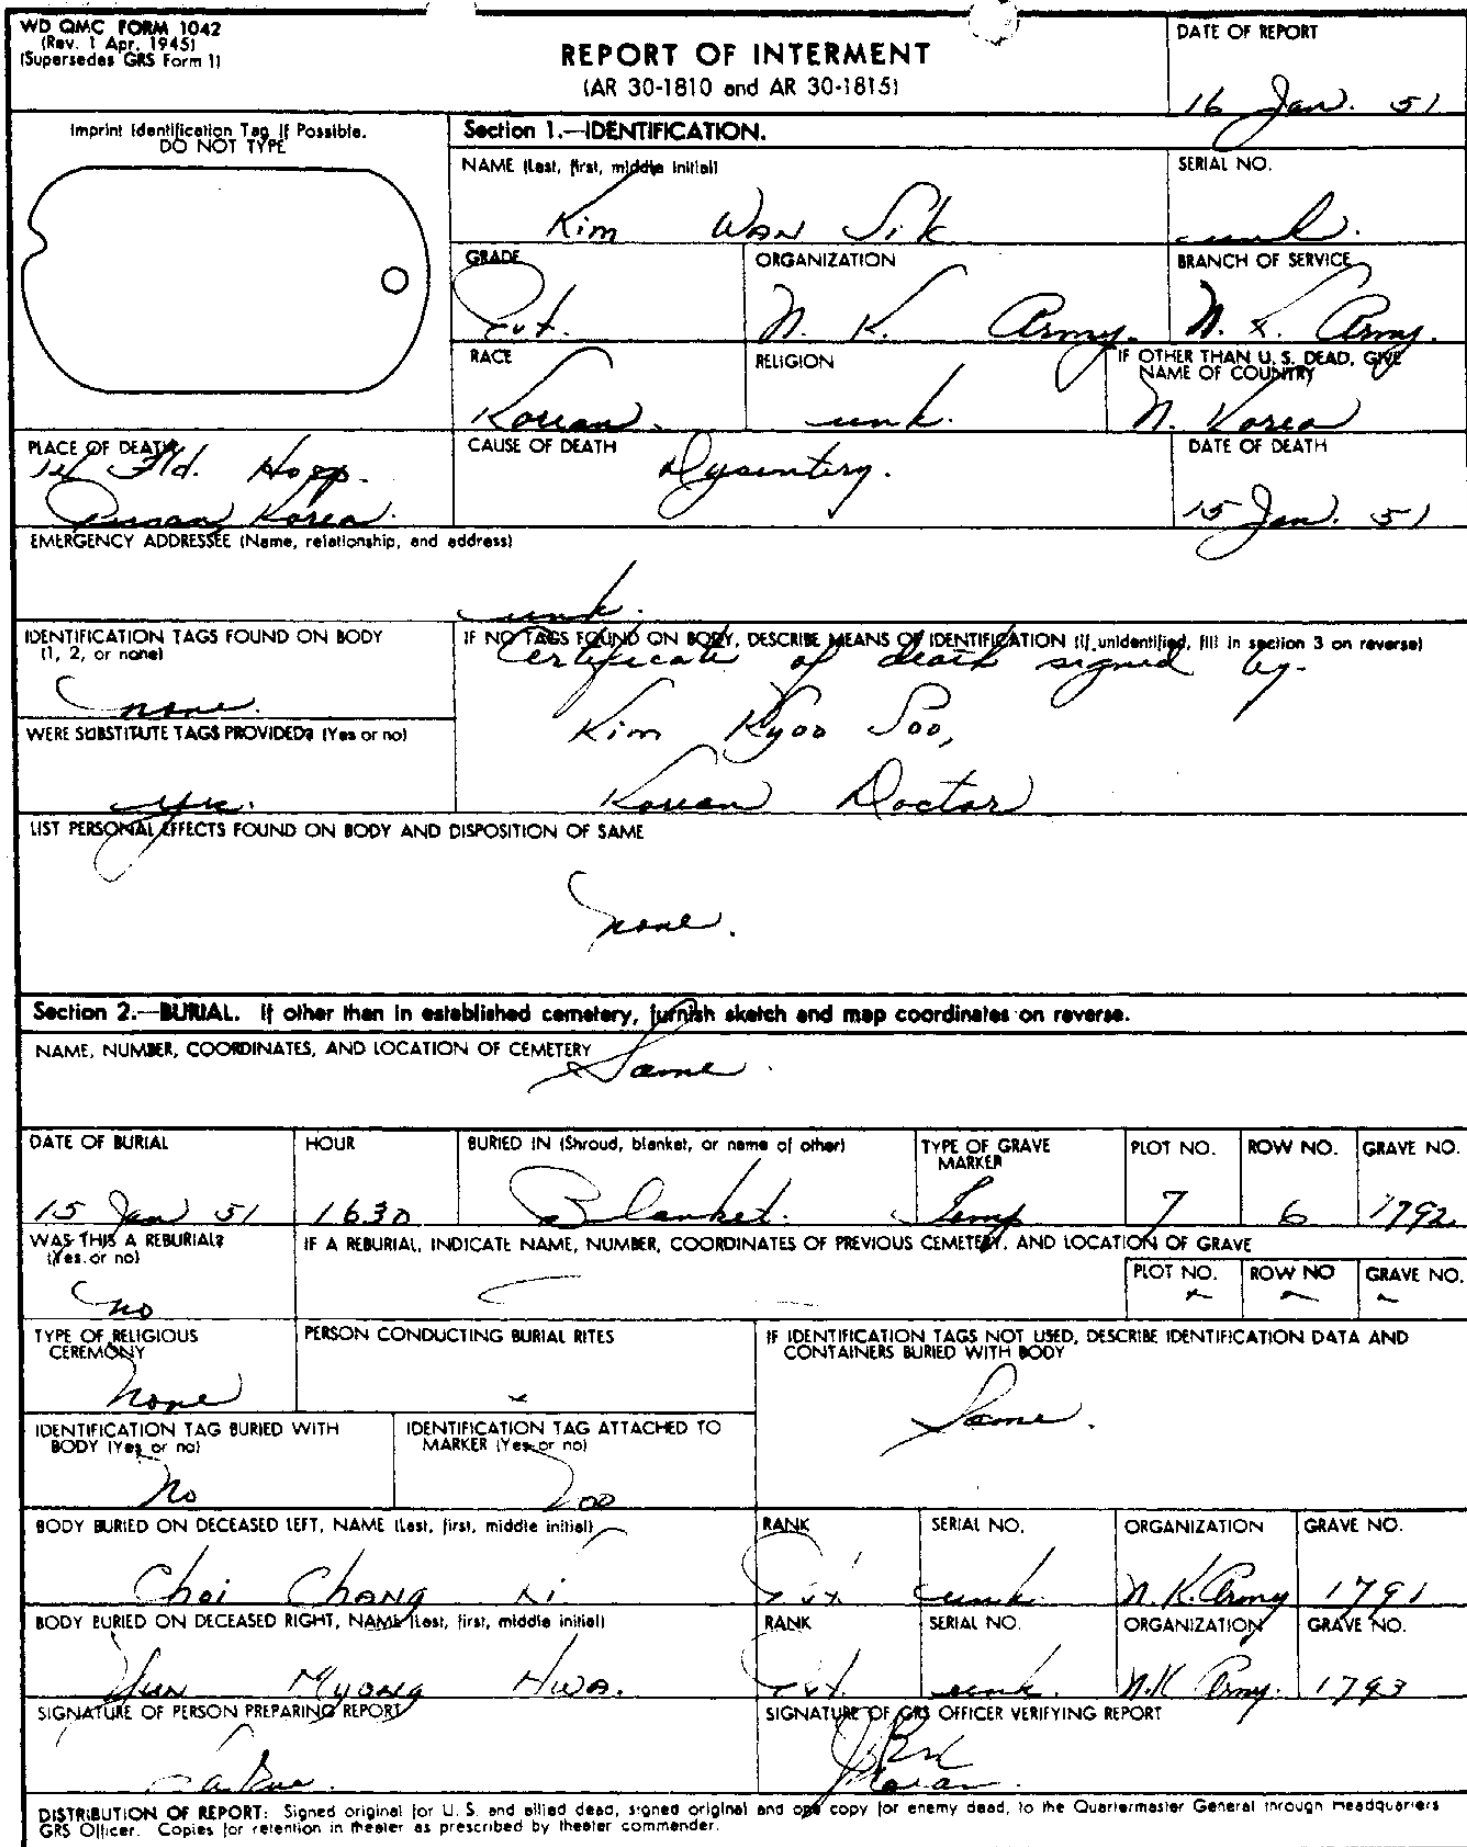 WD QMC FORM 1042
(Rev. 1 Apr. 1945)
(Supersedes GRS Form 1)
REPORT OF INTERMENT
(AR 30-1810 and AR 30-1815)
DATE OF REPORT
16 Jan. 51
Imprint Identification Tag If Possible.
DO NOT TYPE
Section 1.—IDENTIFICATION.
NAME (Last, first, middle initial)
Kim Wan Sik
SERIAL NO.
unk.
GRADE
Pvt.
ORGANIZATION
N. K. Army.
BRANCH OF SERVICE
N. K. Army.
RACE
Korean.
RELIGION
unk.
IF OTHER THAN U. S. DEAD, GIVE
NAME OF COUNTRY
N. Korea
PLACE OF DEATH
14 Fld. Hosp.
Pusan, Korea.
CAUSE OF DEATH
Dysentery.
DATE OF DEATH
15 Jan. 51
EMERGENCY ADDRESSEE (Name, relationship, and address)
unk.
IDENTIFICATION TAGS FOUND ON BODY
(1, 2, or none)
none.
IF NO TAGS FOUND ON BODY, DESCRIBE MEANS OF IDENTIFICATION (If unidentified, fill in section 3 on reverse)
Certificate of death signed by-
Kim Kyoo Soo,
Korean Doctor
WERE SUBSTITUTE TAGS PROVIDED? (Yes or no)
yes.
LIST PERSONAL EFFECTS FOUND ON BODY AND DISPOSITION OF SAME
none.
Section 2.—BURIAL. If other than in established cemetery, furnish sketch and map coordinates on reverse.
NAME, NUMBER, COORDINATES, AND LOCATION OF CEMETERY
Same.
DATE OF BURIAL
15 Jan 51
HOUR
1630
BURIED IN (Shroud, blanket, or name of other)
Blanket.
TYPE OF GRAVE
MARKER
Temp
PLOT NO.
7
ROW NO.
6
GRAVE NO.
1792
WAS THIS A REBURIAL?
(Yes or no)
no
IF A REBURIAL, INDICATE NAME, NUMBER, COORDINATES OF PREVIOUS CEMETERY, AND LOCATION OF GRAVE
PLOT NO.
ROW NO
GRAVE NO.
TYPE OF RELIGIOUS
CEREMONY
none
PERSON CONDUCTING BURIAL RITES
IF IDENTIFICATION TAGS NOT USED, DESCRIBE IDENTIFICATION DATA AND
CONTAINERS BURIED WITH BODY
Same.
IDENTIFICATION TAG BURIED WITH
BODY (Yes or no)
no
IDENTIFICATION TAG ATTACHED TO
MARKER (Yes or no)
BODY BURIED ON DECEASED LEFT, NAME (Last, first, middle initial)
Choi Chang Ki
RANK
Pvt
SERIAL NO.
unk.
ORGANIZATION
N. K. Army
GRAVE NO.
1791
BODY BURIED ON DECEASED RIGHT, NAME (Last, first, middle initial)
Yun Myong Hwa.
RANK
Pvt.
SERIAL NO.
unk.
ORGANIZATION
N.K Army.
GRAVE NO.
1793
SIGNATURE OF PERSON PREPARING REPORT
SIGNATURE OF GRS OFFICER VERIFYING REPORT
DISTRIBUTION OF REPORT: Signed original for U. S. and allied dead, signed original and one copy for enemy dead, to the Quartermaster General through Headquarters
GRS Officer. Copies for retention in theater as prescribed by theater commander.